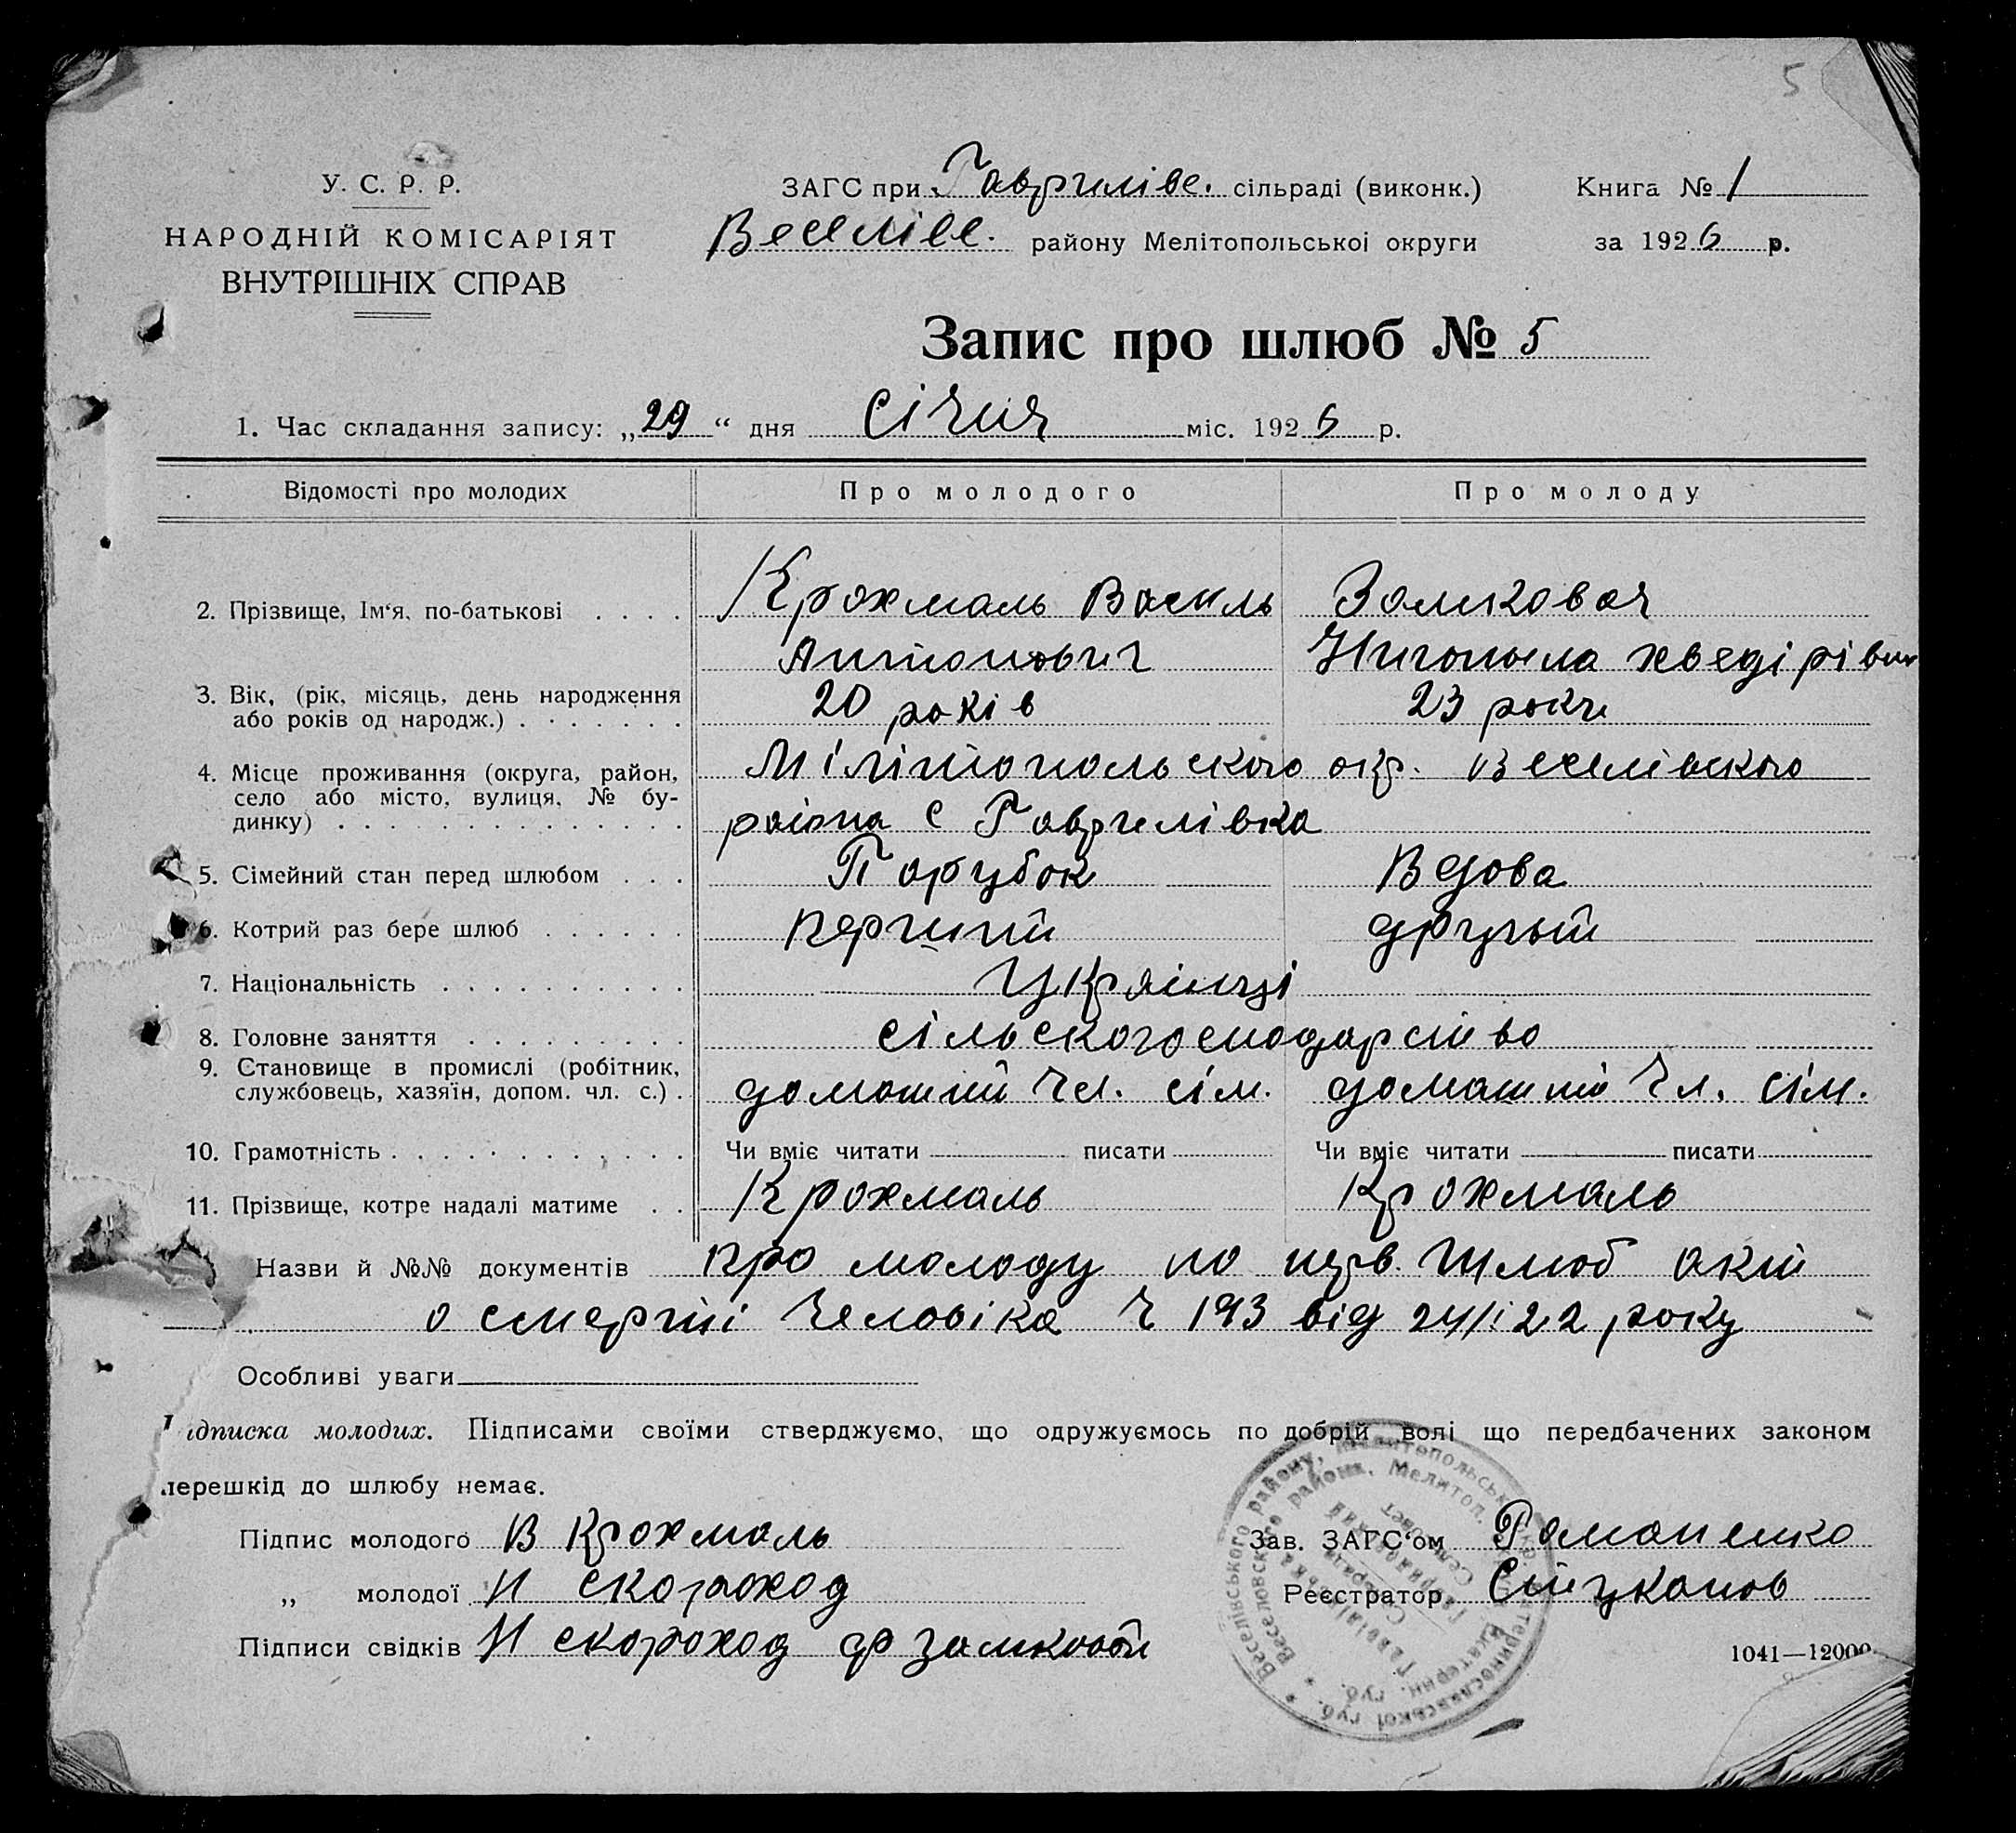 5
У. С. Р. Р.
НАРОДНІЙ КОМІСАРІЯТ
ВНУТРІШНІХ СПРАВ
ЗАГС при Гавриліве. сільраді (виконк.)
Веселіве. району Мелітопольської округи
Книга № 1
за 1926 р.
Запис про шлюб № 5
1. Час складання запису: „29“ дня Січня міс. 1926 р.
Відомості про молодих Про молодого Про молоду
2. Прізвище, Ім‘я, по-батькові . . . . Крохмаль Василь Замковая
Антонович хведірівна
3. Вік, (рік, місяць, день народження
або років од народж.) . . . . . . . 20 років 23 роки
4. Місце проживання (округа, район,
село або місто, вулиця, № бу-
динку) . . . . . . . . . . . . . .
Мілітопольского окр. Веселівского
раіона с Гаврилівка
5. Сімейний стан перед шлюбом . . . Парубок Вдова
6. Котрий раз бере шлюб . . . . . . Перший другий
7. Національність . . . . . . . . . . Українці
8. Головне заняття . . . . . . . . . сільскогосподарство
9. Становище в промислі (робітник,
службовець, хазяїн, допом. чл. с.) . домашній чл. сім. домашня чл. сім.
10. Грамотність . . . . . . . . . . . . Чи вміє читати писати Чи вміє читати писати
11. Прізвище, котре надалі матиме . . Крохмаль Крохмаль
Назви й №№ документів про молоду по церв. шлюб акт
о смерті человіка ч 193 від 24/i 22 року
Особливі уваги
Підписка молодих. Підписами своїми стверджуємо, що одружуємось по добрій волі що передбачених законом
перешкід до шлюбу немає.
Підпис молодого В Крохмаль
„ молодої Н скороход
Підписи свідків Н скороход ф замковой
Зав. ЗАГС‘ом Романенко
Реєстратор Стуканов
1041—12000
Веселівського району, Мелитопольської Катеринославської губ.
Веселовского района, Мелитоп. Екатерин. губ.